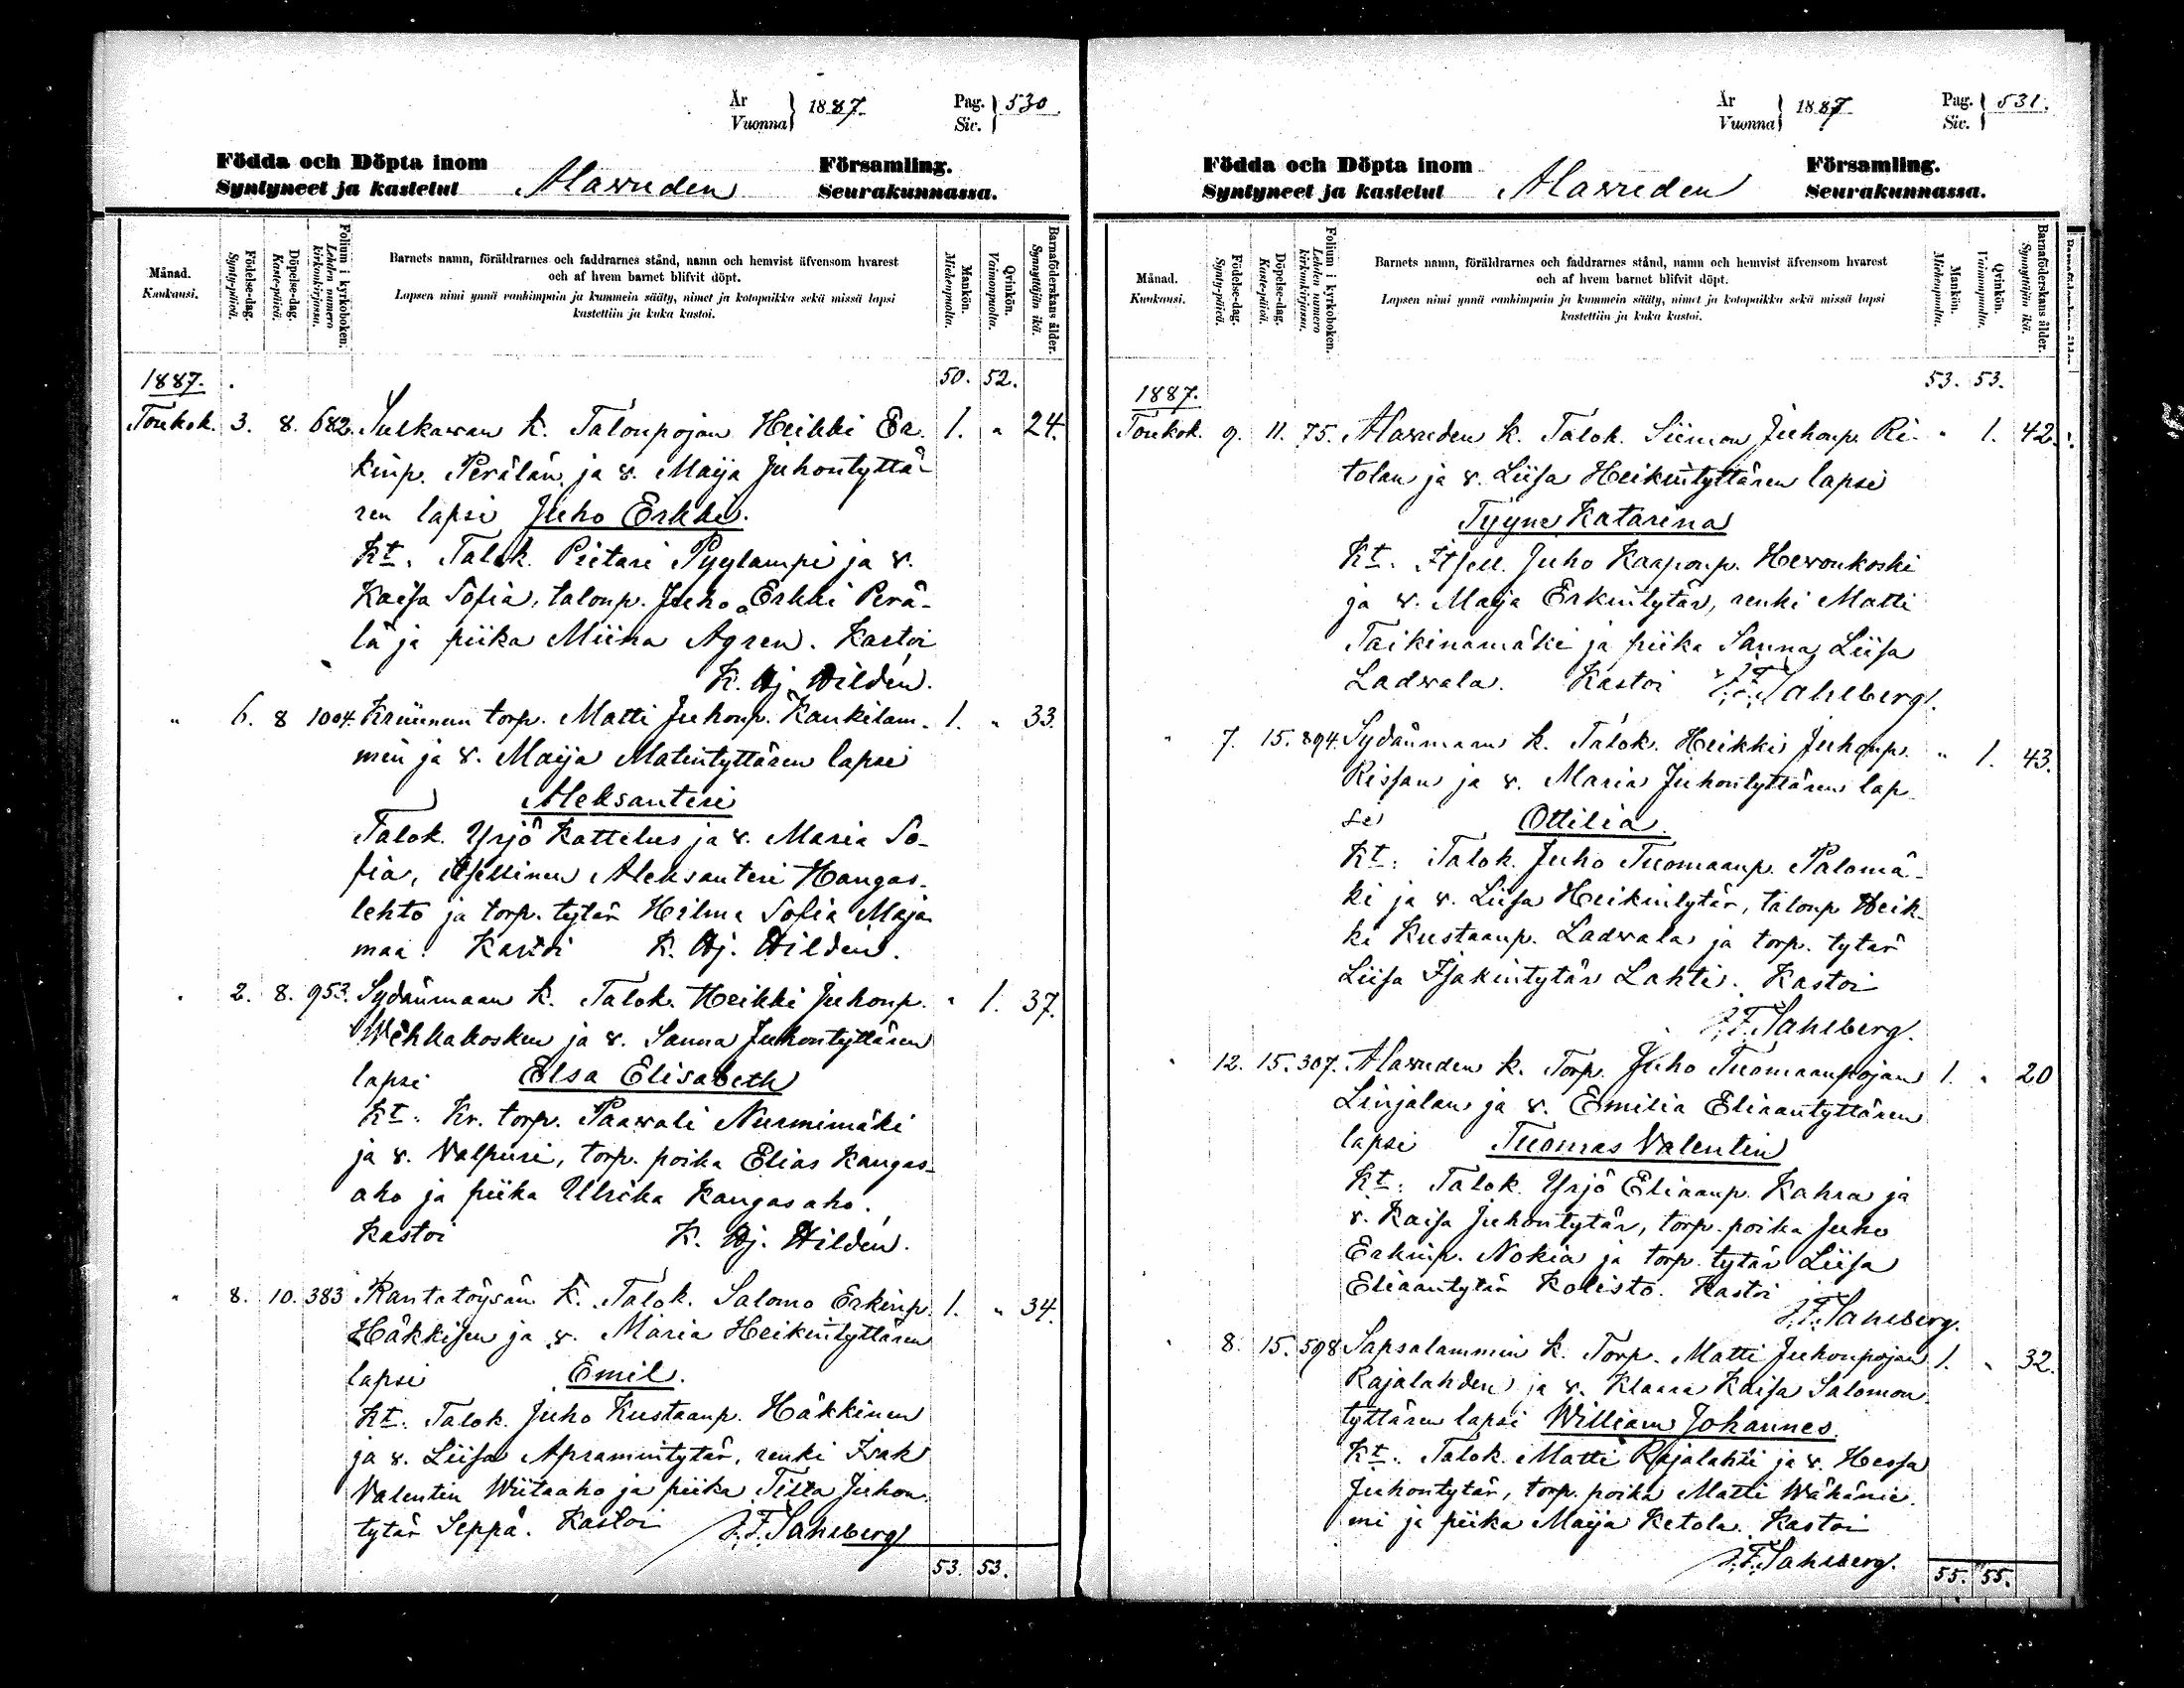 År
Vuonna
1887.
Pag.
Siv.
530.
Födda och Döpta inom
Syntyneet ja kastetut
Alavuden
Församling.
Seurakunnassa.
Månad.
Kuukausi.
Födelse-dag.
Synty-päivä.
Döpelse-dag.
Kaste-päivä.
Folium i kyrkoboken.
Lehden numero
kirkonkirjassa.
Barnets namn, föräldrarnes och faddrarnes stånd, namn och hemvist äfvensom hvarest
och af hvem barnet blifvit döpt.
Lapsen nimi ynnä vanhimpain ja kummein sääty, nimet ja kotopaikka sekä missä lapsi
kastettiin ja kuka kastoi.
Mankön.
Miehenpuolta.
Qvinkön.
Vaimonpuolta.
Barnaföderskans ålder.
Synnyttäjän ikä.
1887. 50. 52.
Toukok. 3. 8. 682. Sulkavan k. Talonpojan Heikki Er- 1. " 24.
kinp. Perälän ja v. Maija Juhontyttä-
ren lapsi Juho Erkki.
Kt. Talok. Pietari Pyylampi ja v.
Kaisa Sofia, talonp. Juho Erkki Perä-
lä ja piika Miina Agren. Kastoi
K. Hj. Hildén.
" 6. 8 1004. Kruunun torp. Matti Juhonp. Kankilam- 1. " 33.
min ja v. Maija Matintyttären lapsi
Aleksanteri
Talok. Yrjö Kattelus ja v. Maria So-
fia, itsellinen Aleksanteri Hangas-
lehto ja torp. tytär Hilma Sofia Maja
maa. Kastoi K. Hj. Hildén.
" 2. 8. 953. Sydänmaan k. Talok. Heikki Juhonp. " 1. 37.
Wehkakosken ja v. Sanna Juhontyttären
lapsi Elsa Elisabeth
Kt. Kr. torp. Paawali Nurmimäki
ja v. Valpuri, torp. poika Elias Kangas-
aho ja piika Ulrika Kangasaho.
Kastoi K. Hj. Hildén.
" 8. 10. 383 Rantatöysän k. Talok. Salomo Erkinp. 1. " 34.
Häkkisen ja v. Maria Heikintyttären
lapsi Emil.
Kt. Talok. Juho Kustaanp. Häkkinen
ja v. Liisa Apramintytär, renki Isak
Valentin Wiitaaho ja piika Tilta Juhon
tytär Seppä. Kastoi J. F. Sahlberg
53. 53.
År
Vuonna
1887
Pag.
Siv.
531.
Födda och Döpta inom
Syntyneet ja kastetut
Alavuden
Församling.
Seurakunnassa.
Månad.
Kuukausi.
Födelse-dag.
Synty-päivä.
Döpelse-dag.
Kaste-päivä.
Folium i kyrkoboken.
Lehden numero
kirkonkirjassa.
Barnets namn, föräldrarnes och faddrarnes stånd, namn och hemvist äfvensom hvarest
och af hvem barnet blifvit döpt.
Lapsen nimi ynnä vanhimpain ja kummein sääty, nimet ja kotopaikka sekä missä lapsi
kastettiin ja kuka kastoi.
Mankön.
Miehenpuolta.
Qvinkön.
Vaimonpuolta.
Barnaföderskans ålder.
Synnyttäjän ikä.
1887. 53. 53.
Toukok. 9. 11. 75. Alavuden k. Talok. Siimon Juhonp. Ri- " 1. 42.
tolan ja v. Liisa Heikintyttären lapsi
Tyyne Katarina
Kt. Itsell. Juho Kaaponp. Hevonkoski
ja v. Maija Erkintytär, renki Matti
Taikinamäki ja piika Sanna Liisa
Ladvala. Kastoi J. F. Sahlberg.
" 7. 15. 894. Sydänmaan k. Talok. Heikki Juhonp. " 1. 43.
Rissan ja v. Maria Juhontyttären lap
se Ottilia.
Kt. Talok. Juho Tuomaanp. Palomä-
ki ja v. Liisa Heikintytär, talonp. Heik-
ki Kustaanp. Ladvala ja torp. tytär
Liisa Isakintytär Lahti. Kastoi
J. F. Sahlberg.
" 12. 15. 307. Alavuden k. Torp. Juho Tuomaanpojan 1. " 20
Linjalan ja v. Emilia Eliaantyttären
lapsi Tuomas Valentin
Kt. Talok. Yrjö Eliaanp. Kahra ja
v. Kaisa Juhontytär, torp. poika Juho
Erkinp. Nokia ja torp. tytär Liisa
Eliaantytär Kolisto. Kastoi
J. F. Sahlberg.
" 8. 15. 598 Sapsalammin k. Torp. Matti Juhonpojan 1. " 32.
Rajalahden ja v. Klaara Kaisa Salomon
tyttären lapsi William Johannes.
Kt. Talok. Matti Rajalahti ja v. Hessa
Juhontytär, torp. poika Matti Wähänie-
mi ja piika Maija Ketola. Kastoi
J. F. Sahlberg.
55. 55.